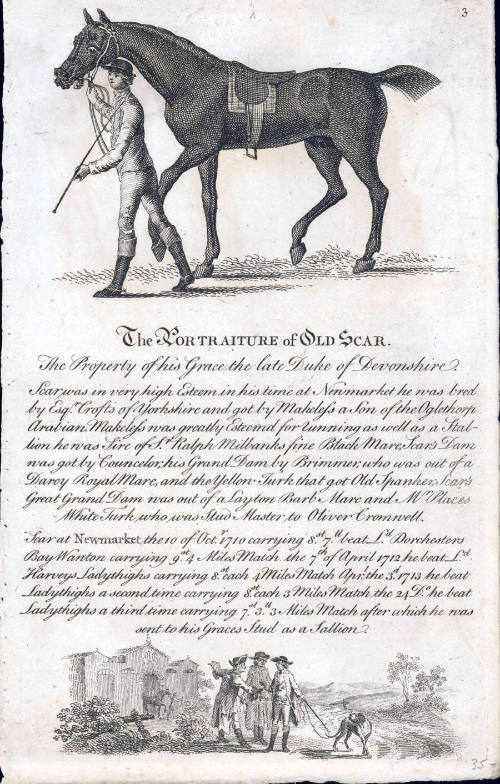 3
The PORTRAITURE of OLD SCAR.
The Property of his Grace the late Duke of Devonshire.
Scar, was in very high Esteem in his time at Newmarket he was bred
by Esqr. Crofts of Yorkshire and got by Makeless a Son of the Oglethorp
Arabian Makeless was greatly Esteemd for running as well as a Stal-
lion he was Sire of Sr. Ralph Milbanks fine Black Mare, Scar's Dam
was got by Councelor, his Grand Dam by Brimmer, who was out of a
Darcy Royal Mare, and the Yellow Turk that got Old Spanker, Scar's
Great Grand Dam was out of a Layton Barb Mare and Mr. Places
White Turk, who was Stud Master to Oliver Cromwell.
Scar at Newmarket the 10 of Oct. 1710 carrying 8.st 7.lb beat Ld. Dorchesters
Bay Wanton carrying 9.st 4 Miles Match. the 7th of April 1712 he beat Ld.
Harveys Ladythighs carrying 8.st each 4 Miles Match Apr. the 3d. 1713 he beat
Ladythighs a second time carrying 8.st each 3 Miles Match. the 24 Do. he beat
Ladythighs a third time carrying 7.st 3.lb 3 Miles Match after which he was
sent to his Graces Stud as a Sallion.
35